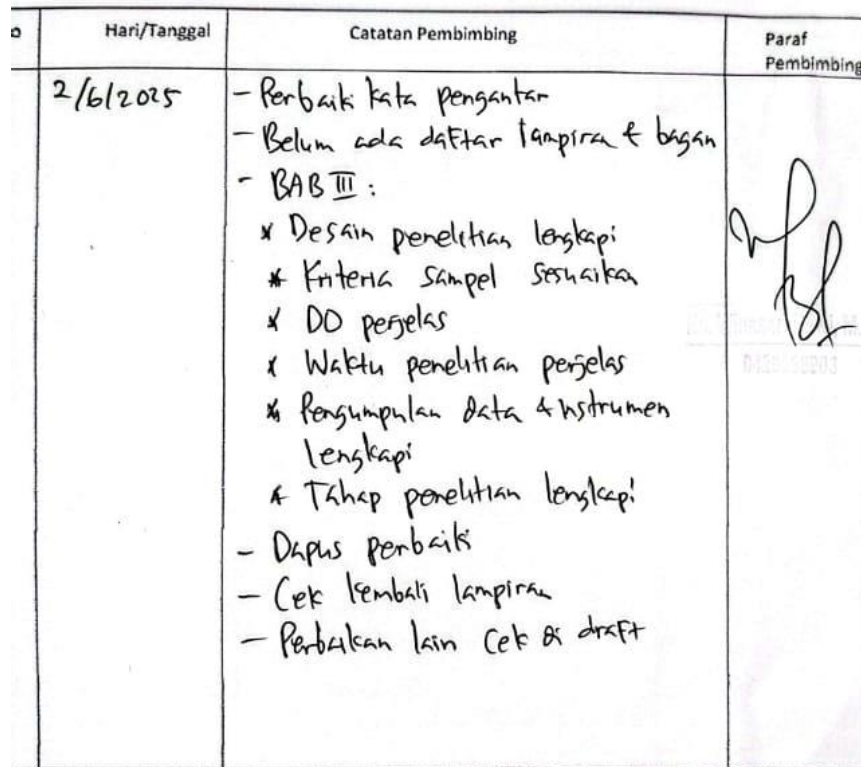 o
Hari/Tanggal
Catatan Pembimbing
Paraf
Pembimbing
2/6/2025
- Perbaiki kata pengantar
- Belum ada daftar lampiran & bagan
- BAB III :
* Desain penelitian lengkapi
* Kriteria sampel sesuaikan
* DO perjelas
* Waktu penelitian perjelas
* Pengumpulan data & instrumen
lengkapi
* Tahap penelitian lengkapi
- Dapus perbaiki
- Cek kembali lampiran
- Perbaikan lain cek di draft